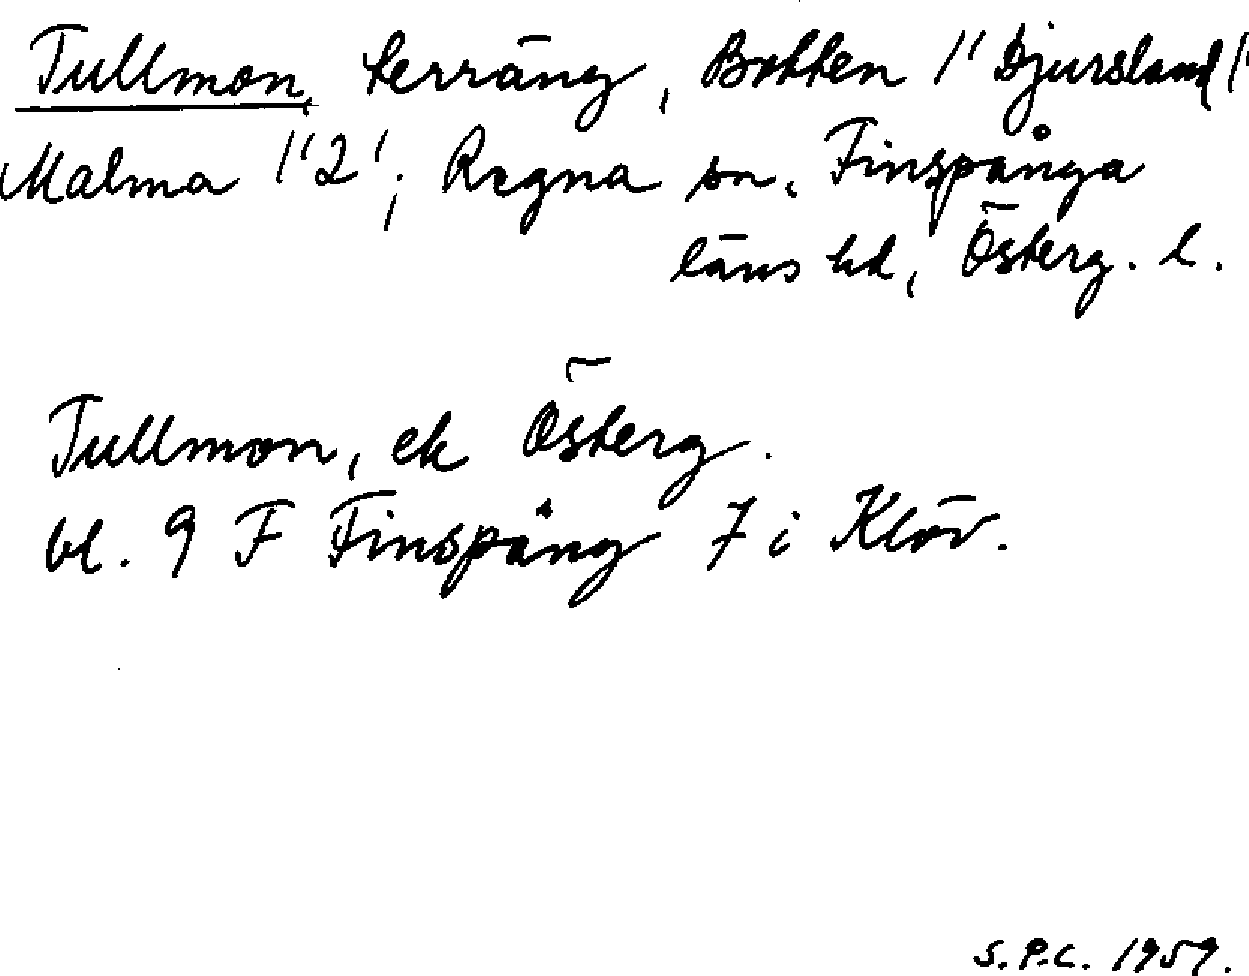 Tullmon, terräng, Botten 1/1 Djursland 1/1
Malma 1/2; Regna sn, Finspånga
läns hd, Österg. l.
Tullmon, ek Österg.
bl. 9 F Finspång 7 i Klöv.
S.P.C. 1959.